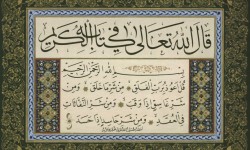 قال الله تعالى في كتابه الكريم
بسم الله الرحمن الرحيم
قل أعوذ برب الفلق من شر ما خلق ومن
شر غاسق إذا وقب ومن شر النفاثات
في العقد ومن شر حاسد إذا حسد